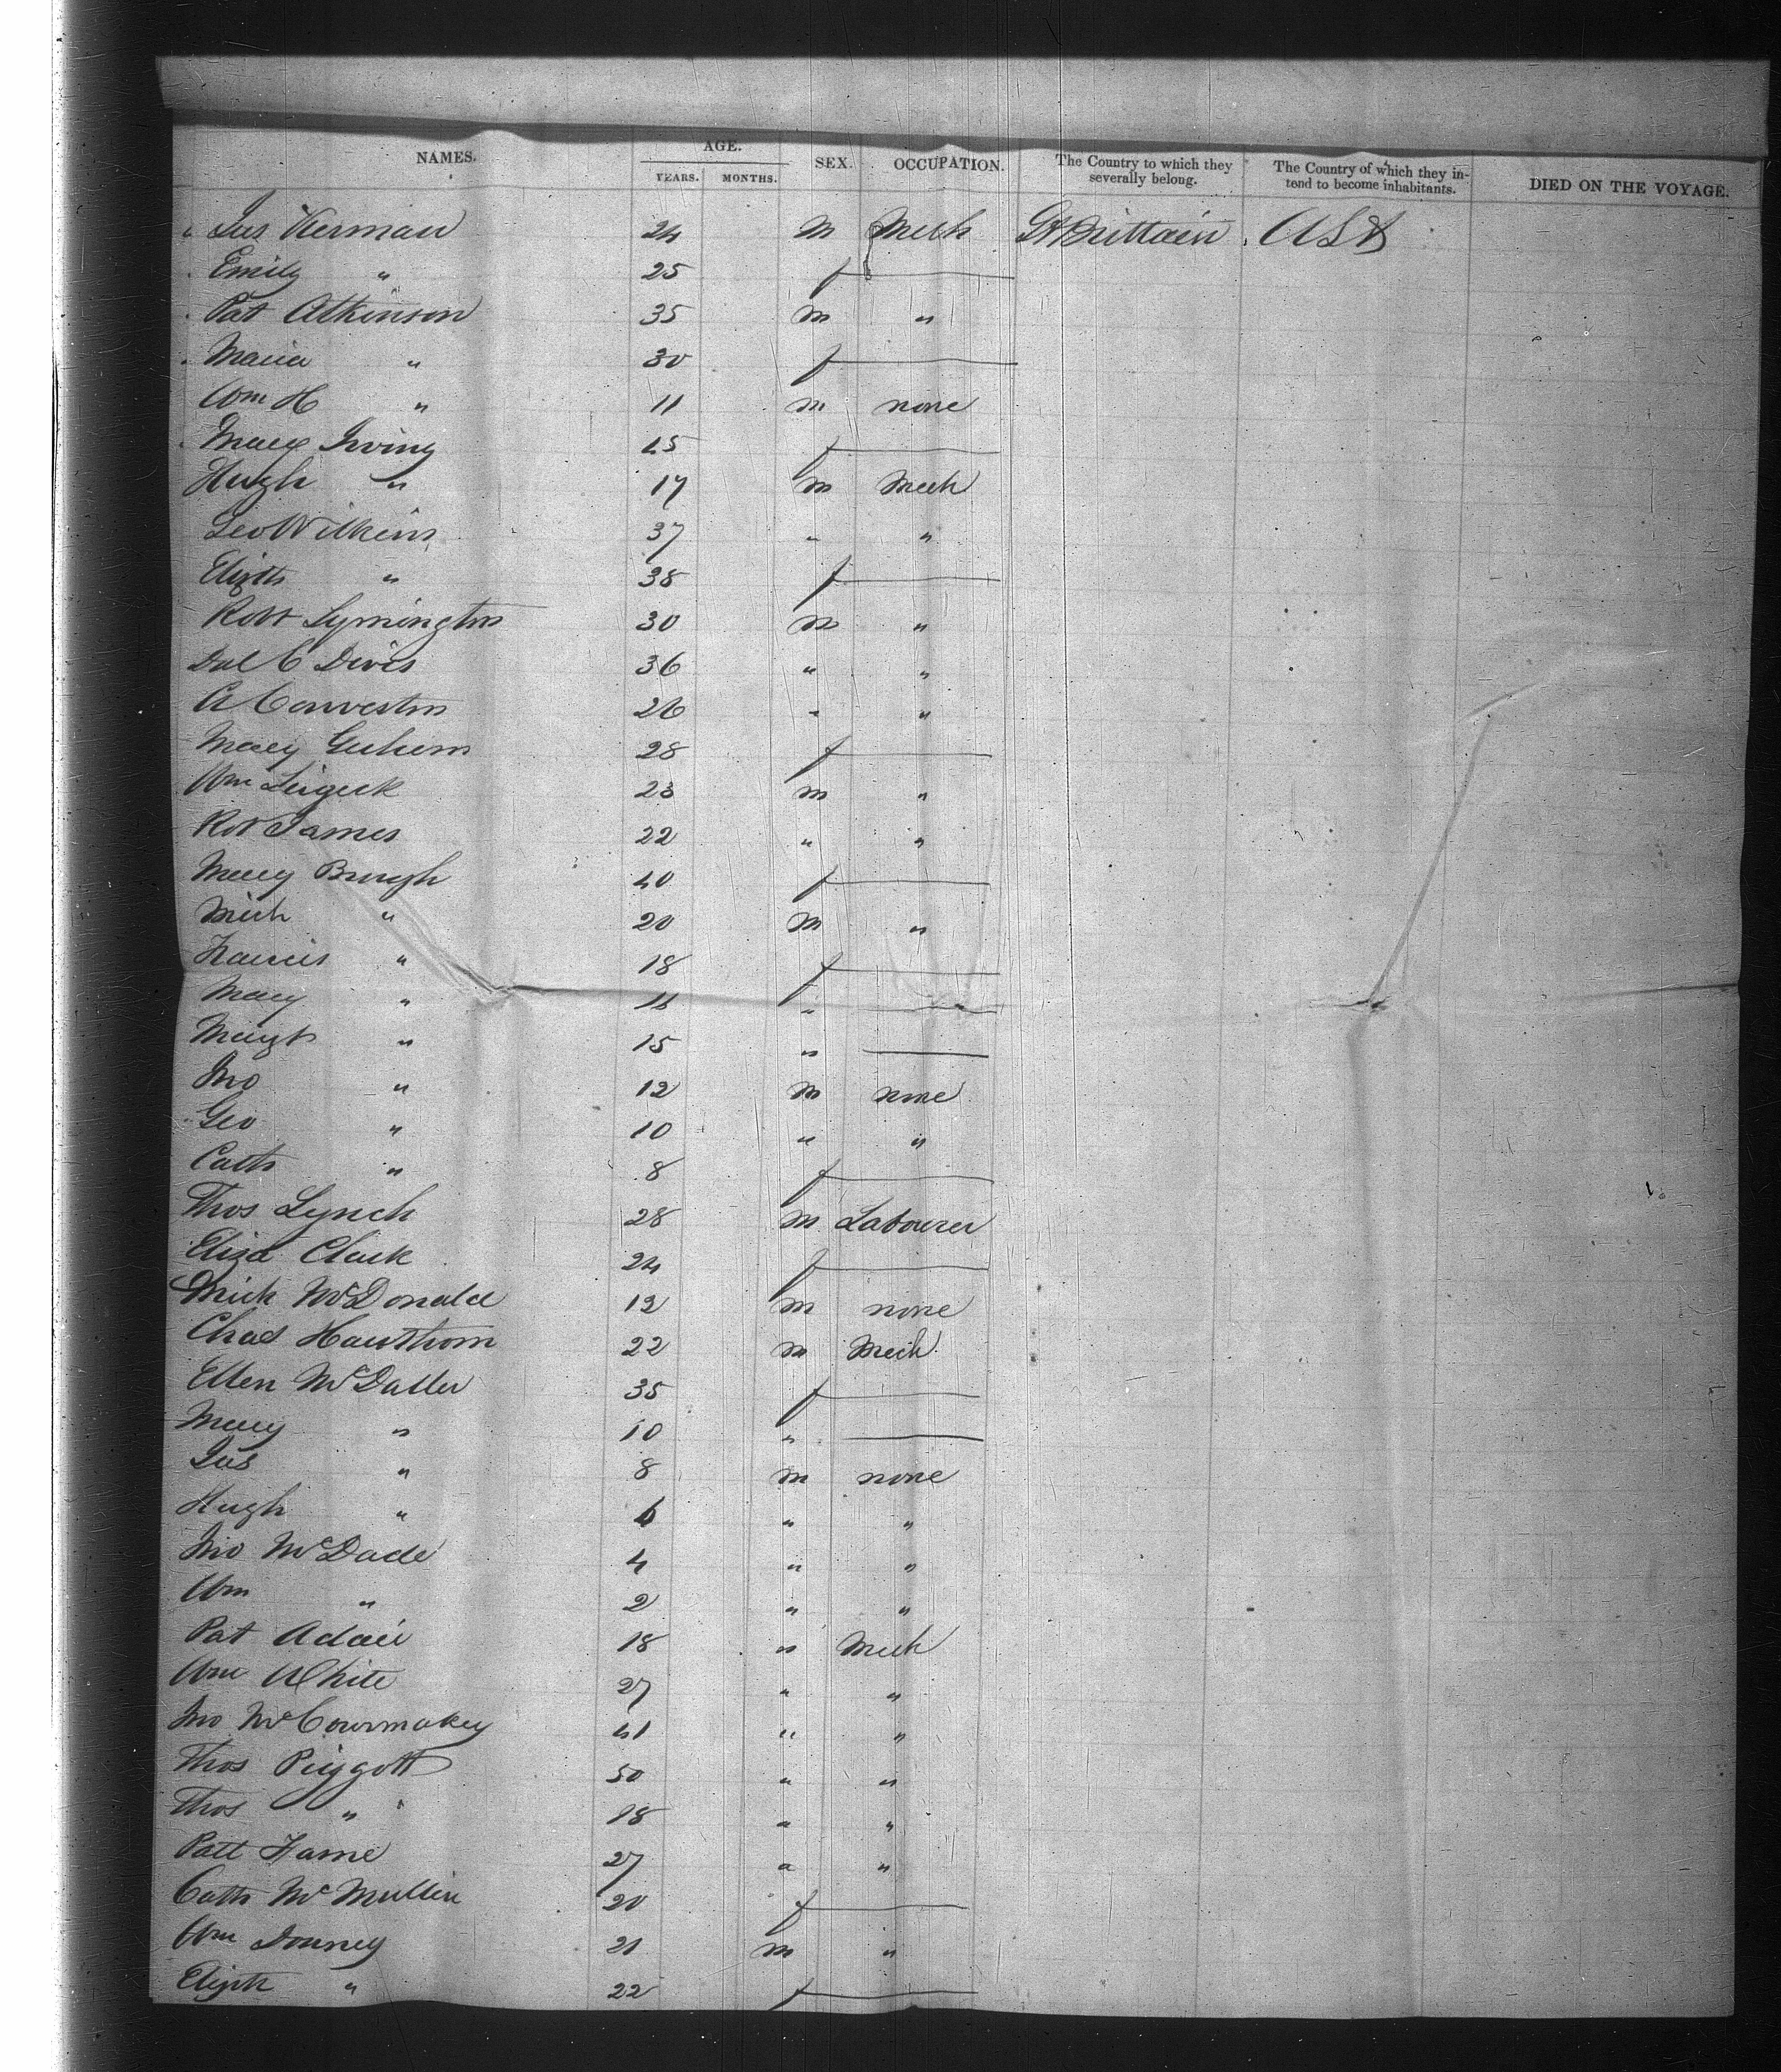 NAMES. AGE. SEX. OCCUPATION. The Country to which they severally belong. The Country of which they in-tend to become inhabitants. DIED ON THE VOYAGE.
YEARS. MONTHS.
Jas Kerman 24 m Mech Gt Brittain USA
Emily " 25 f
Pat Atkinson 35 m "
Maria " 30 f
Wm H " 11 m none
Mary Irving 45 f
Hugh " 17 m Mech
Geo Wilkins 37 " "
Elizth " 38 f
Robt Lymington 30 m "
36 " "
A 26 " "
Mary 28 f
Wm 23 m "
Robt James 22 " "
Mary Brough 40 f
Mich " 20 m "
Francis " 18 f
Mary " "
Margt " 15 "
Jno " 12 m none
Geo " 10 " "
Cath " 8 f
Thos Lynch 28 m Labourer
Eliza Clark 24 f
Mich McDonald 12 m none
Chas Hawthorn 22 m Mech
Ellen 35 f
Mary " 10 "
Jas " 8 m none
Hugh " 6 " "
Jno McDade 4 " "
Wm " 2 " "
Pat Adair 18 " Mech
Wm White 27 " "
Jno 41 " "
Thos Piggott 50 " "
Thos " 18 " "
Patt 27 " "
Cath McMullin 20 f
Wm Downey 21 m "
Elizth " 22 f